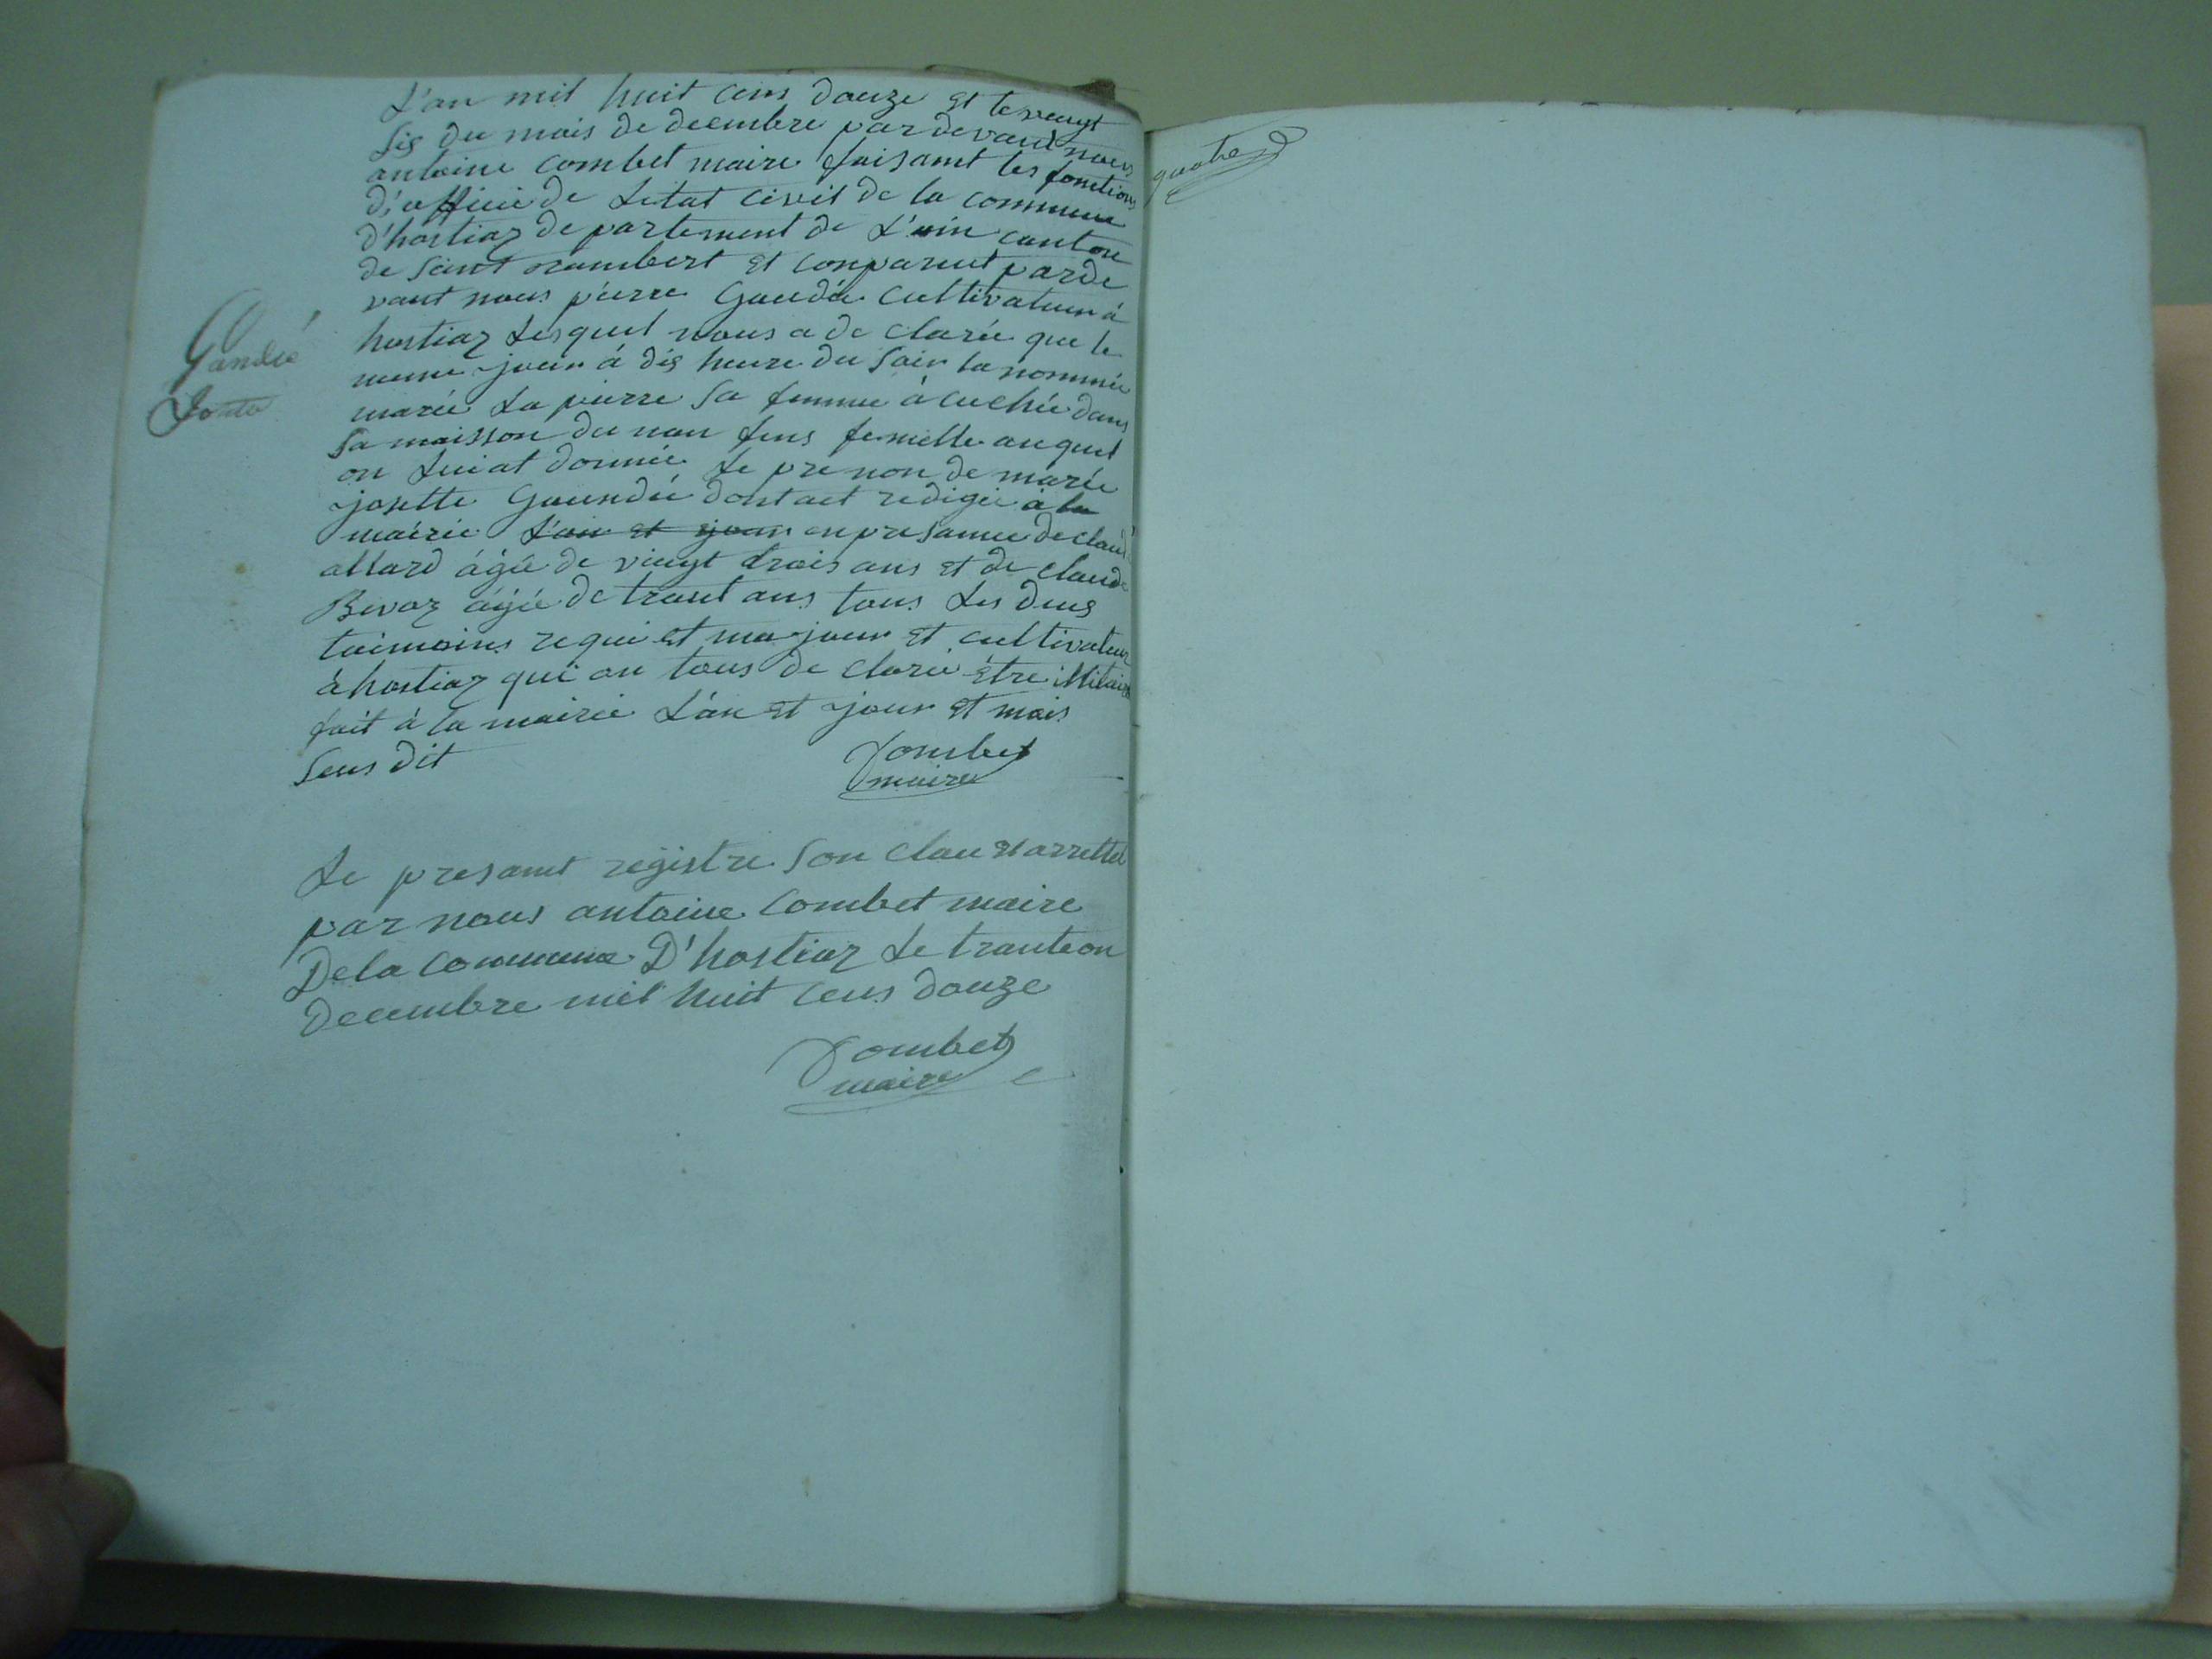 L'an mil huit cens douze et le veingt
sis du mois de decembre par devant nous
antoine combet maire faisannt les fonctions
d'officié de Létat civil de la commune
d'hostiaz departement de L'ain canton
de saint rambert et conparut parde
vant nous pierre Gaudée cultivateur à
hostiaz Lesquel nous a de clarée que le
meme jour à dis heure du soir la nommée
marie La pierre sa femme à cuchée dans
sa maisson du nan fens femelle auquel
on Lui at donnée Le pre non de marie
josette Gaundée dont act redigée à la
mairie L'an et jour en presannce de claud
allard àgée de vingt trois ans et de claude
Bevoz àgée de trant ans tous Les deus
taimoins requi et majeur et cultivateur
à hostiaz qui on tous de clarée être illitaire
fait à la mairie L'an et jour et mois
sus dit
Combet
maire
Gandée
Le presannt registre son clau et arrettel
par nous antoine combet maire
De la commune D'hostiaz Le tranteon
Decembre mil huit cens douze
Combet
maire
quatre